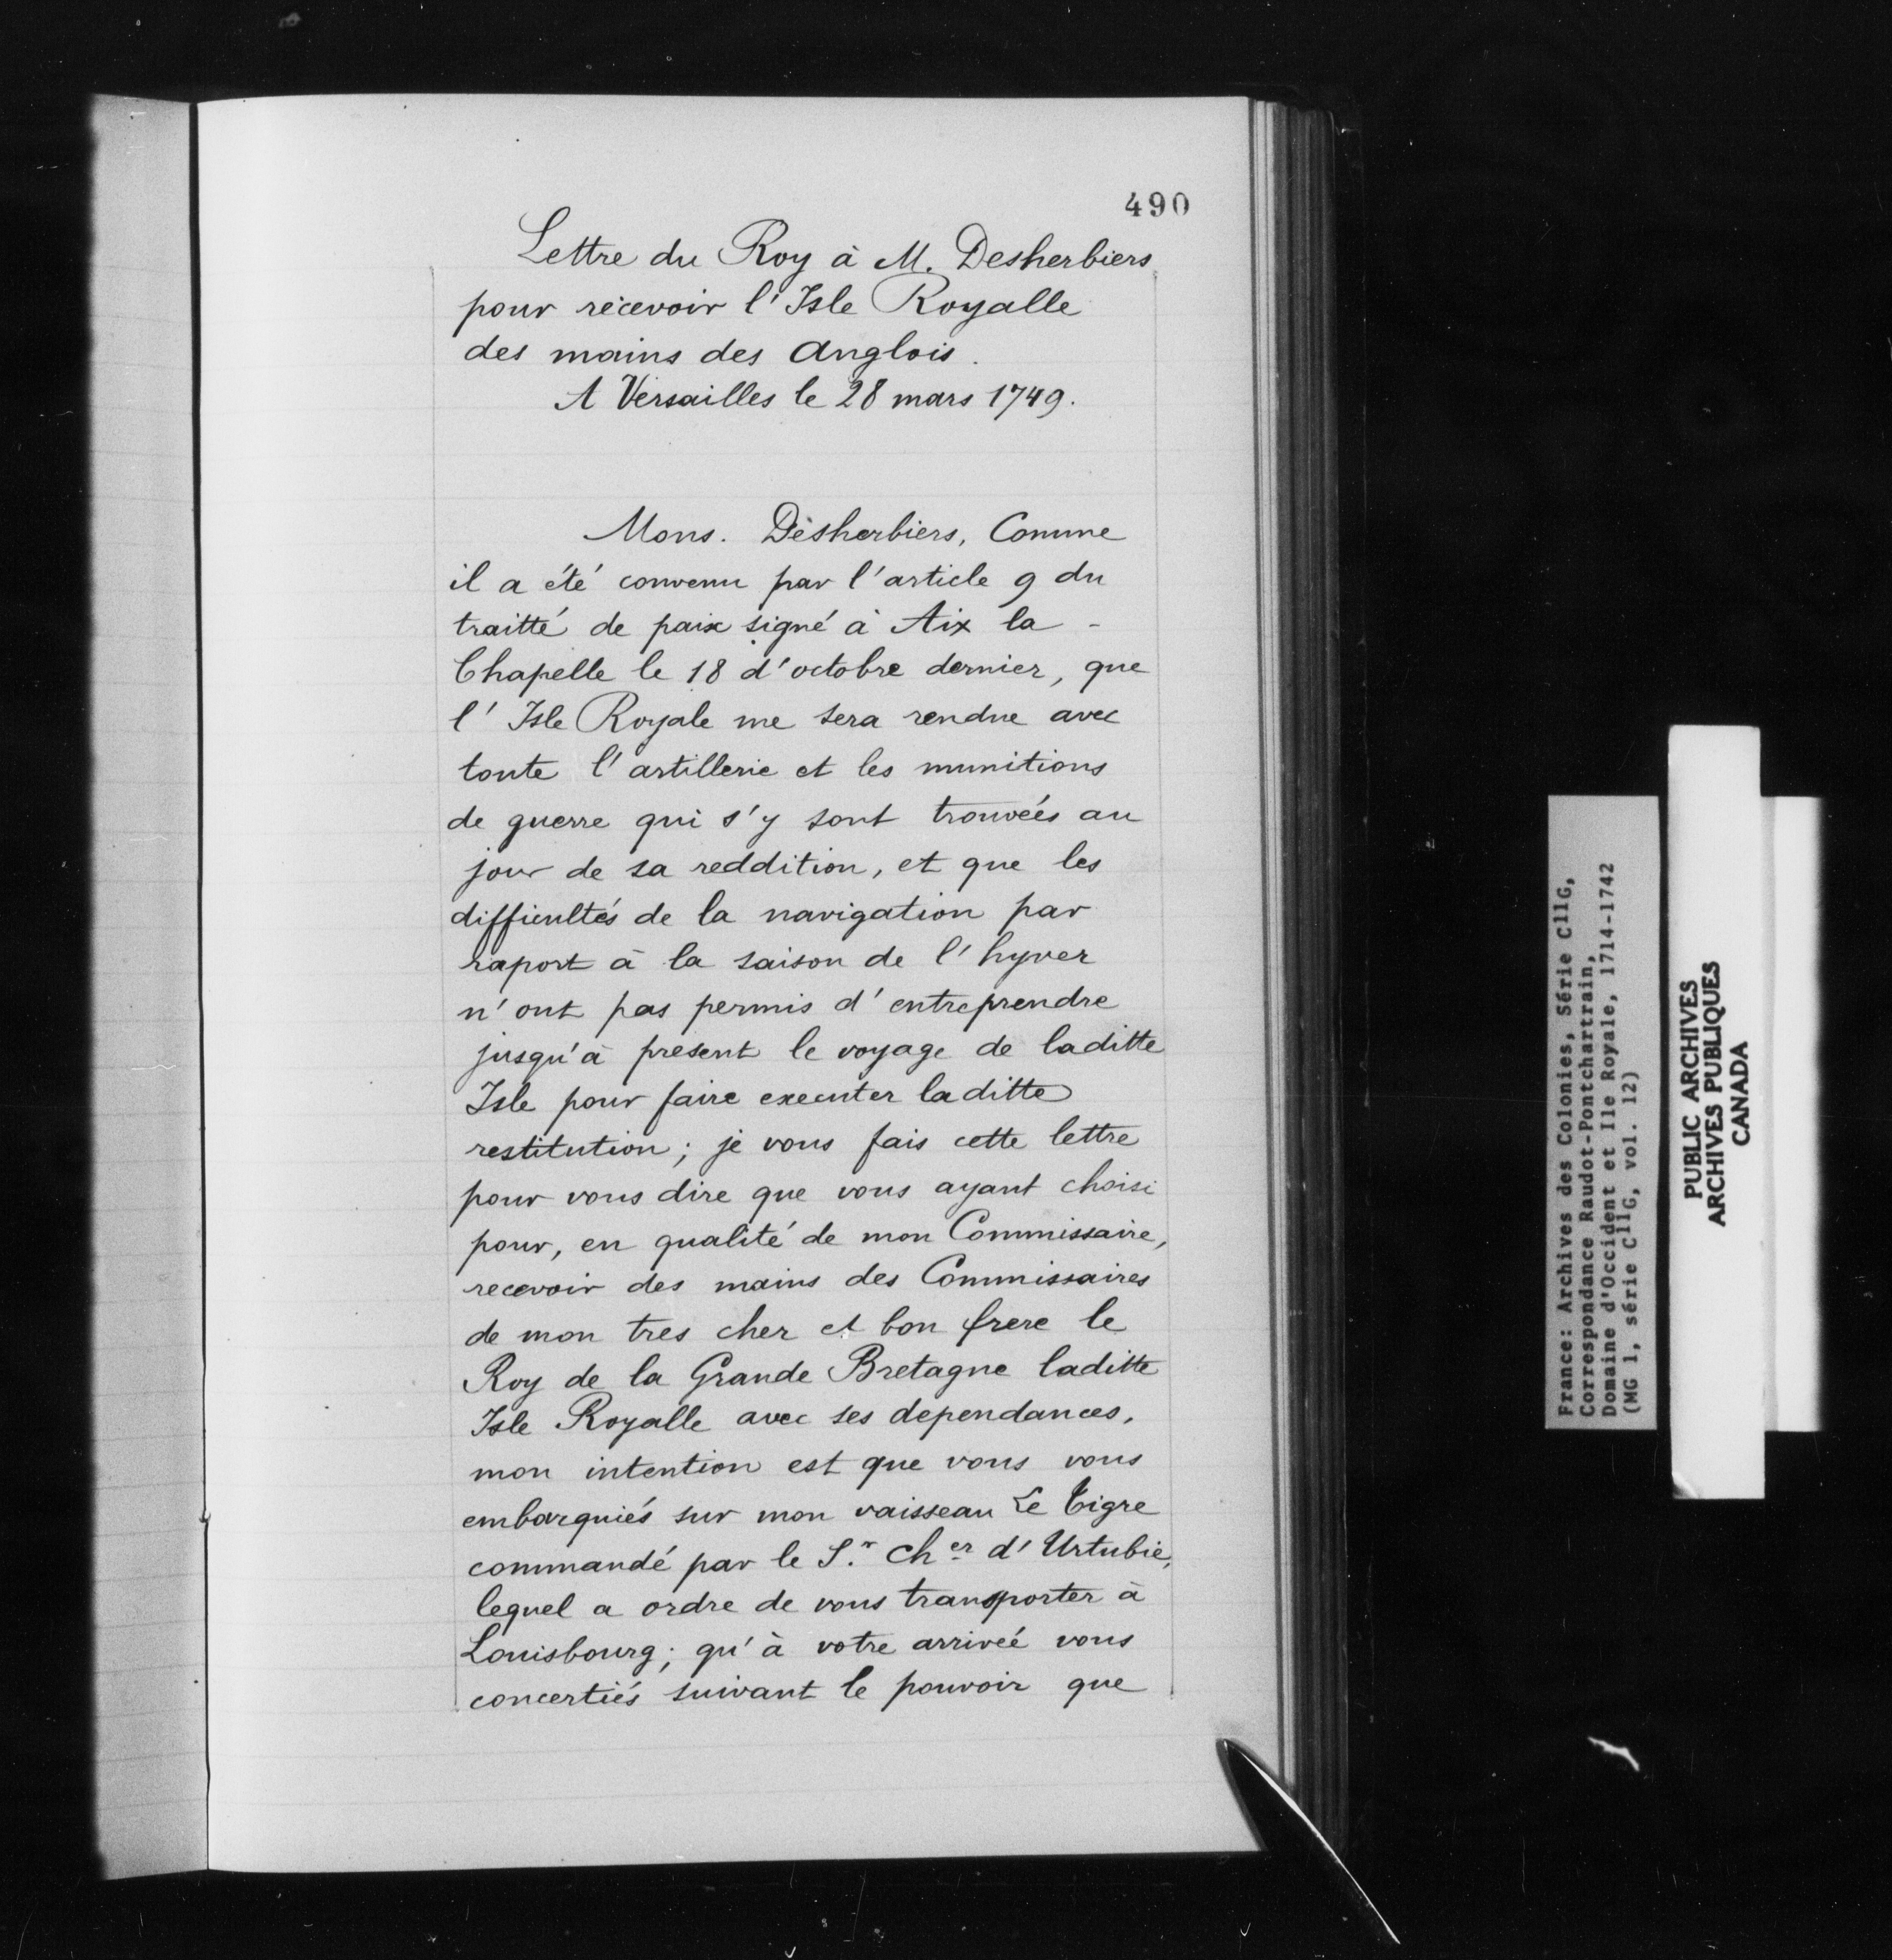 490
Lettre du Roy à M. Desherbiers
pour récevoir l'Isle Royalle
des mains des Anglois.
A Versailles le 28 mars 1749.
Mons. Désherbiers, Comme
il a été convenu par l'article 9 du
traitté de paix signé à Aix la -
Chapelle le 18 d'octobre dernier, que
l'Isle Royale me sera rendue avec
toute l'artillerie et les munitions
de guerre qui s'y sont trouvées au
jour de sa reddition, et que les
difficultés de la navigation par
raport à la saison de l'hyver
n'ont pas permis d'entreprendre
jusqu'à présent le voyage de laditte
Isle pour faire executer laditte
restitution; je vous fais cette lettre
pour vous dire que vous ayant choisi
pour, en qualité de mon Commissaire,
recevoir des mains des Commissaires
de mon tres cher et bon frere le
Roy de la Grande Bretagne laditte
Isle Royalle avec ses dependances,
mon intention est que vous vous
embarquiés sur mon vaisseau Le Tigre
commandé par le S.r Cher d'Urtubie,
lequel a ordre de vous transporter à
Louisbourg; qu'à votre arrivée vous
concertiés suivant le pouvoir que
France: Archives des Colonies, Série C11G,
Correspondance Raudot-Pontchartrain,
Domaine d'Occident et Ile Royale, 1714-1742
(MG 1, série C11G, vol. 12)
PUBLIC ARCHIVES
ARCHIVES PUBLIQUES
CANADA